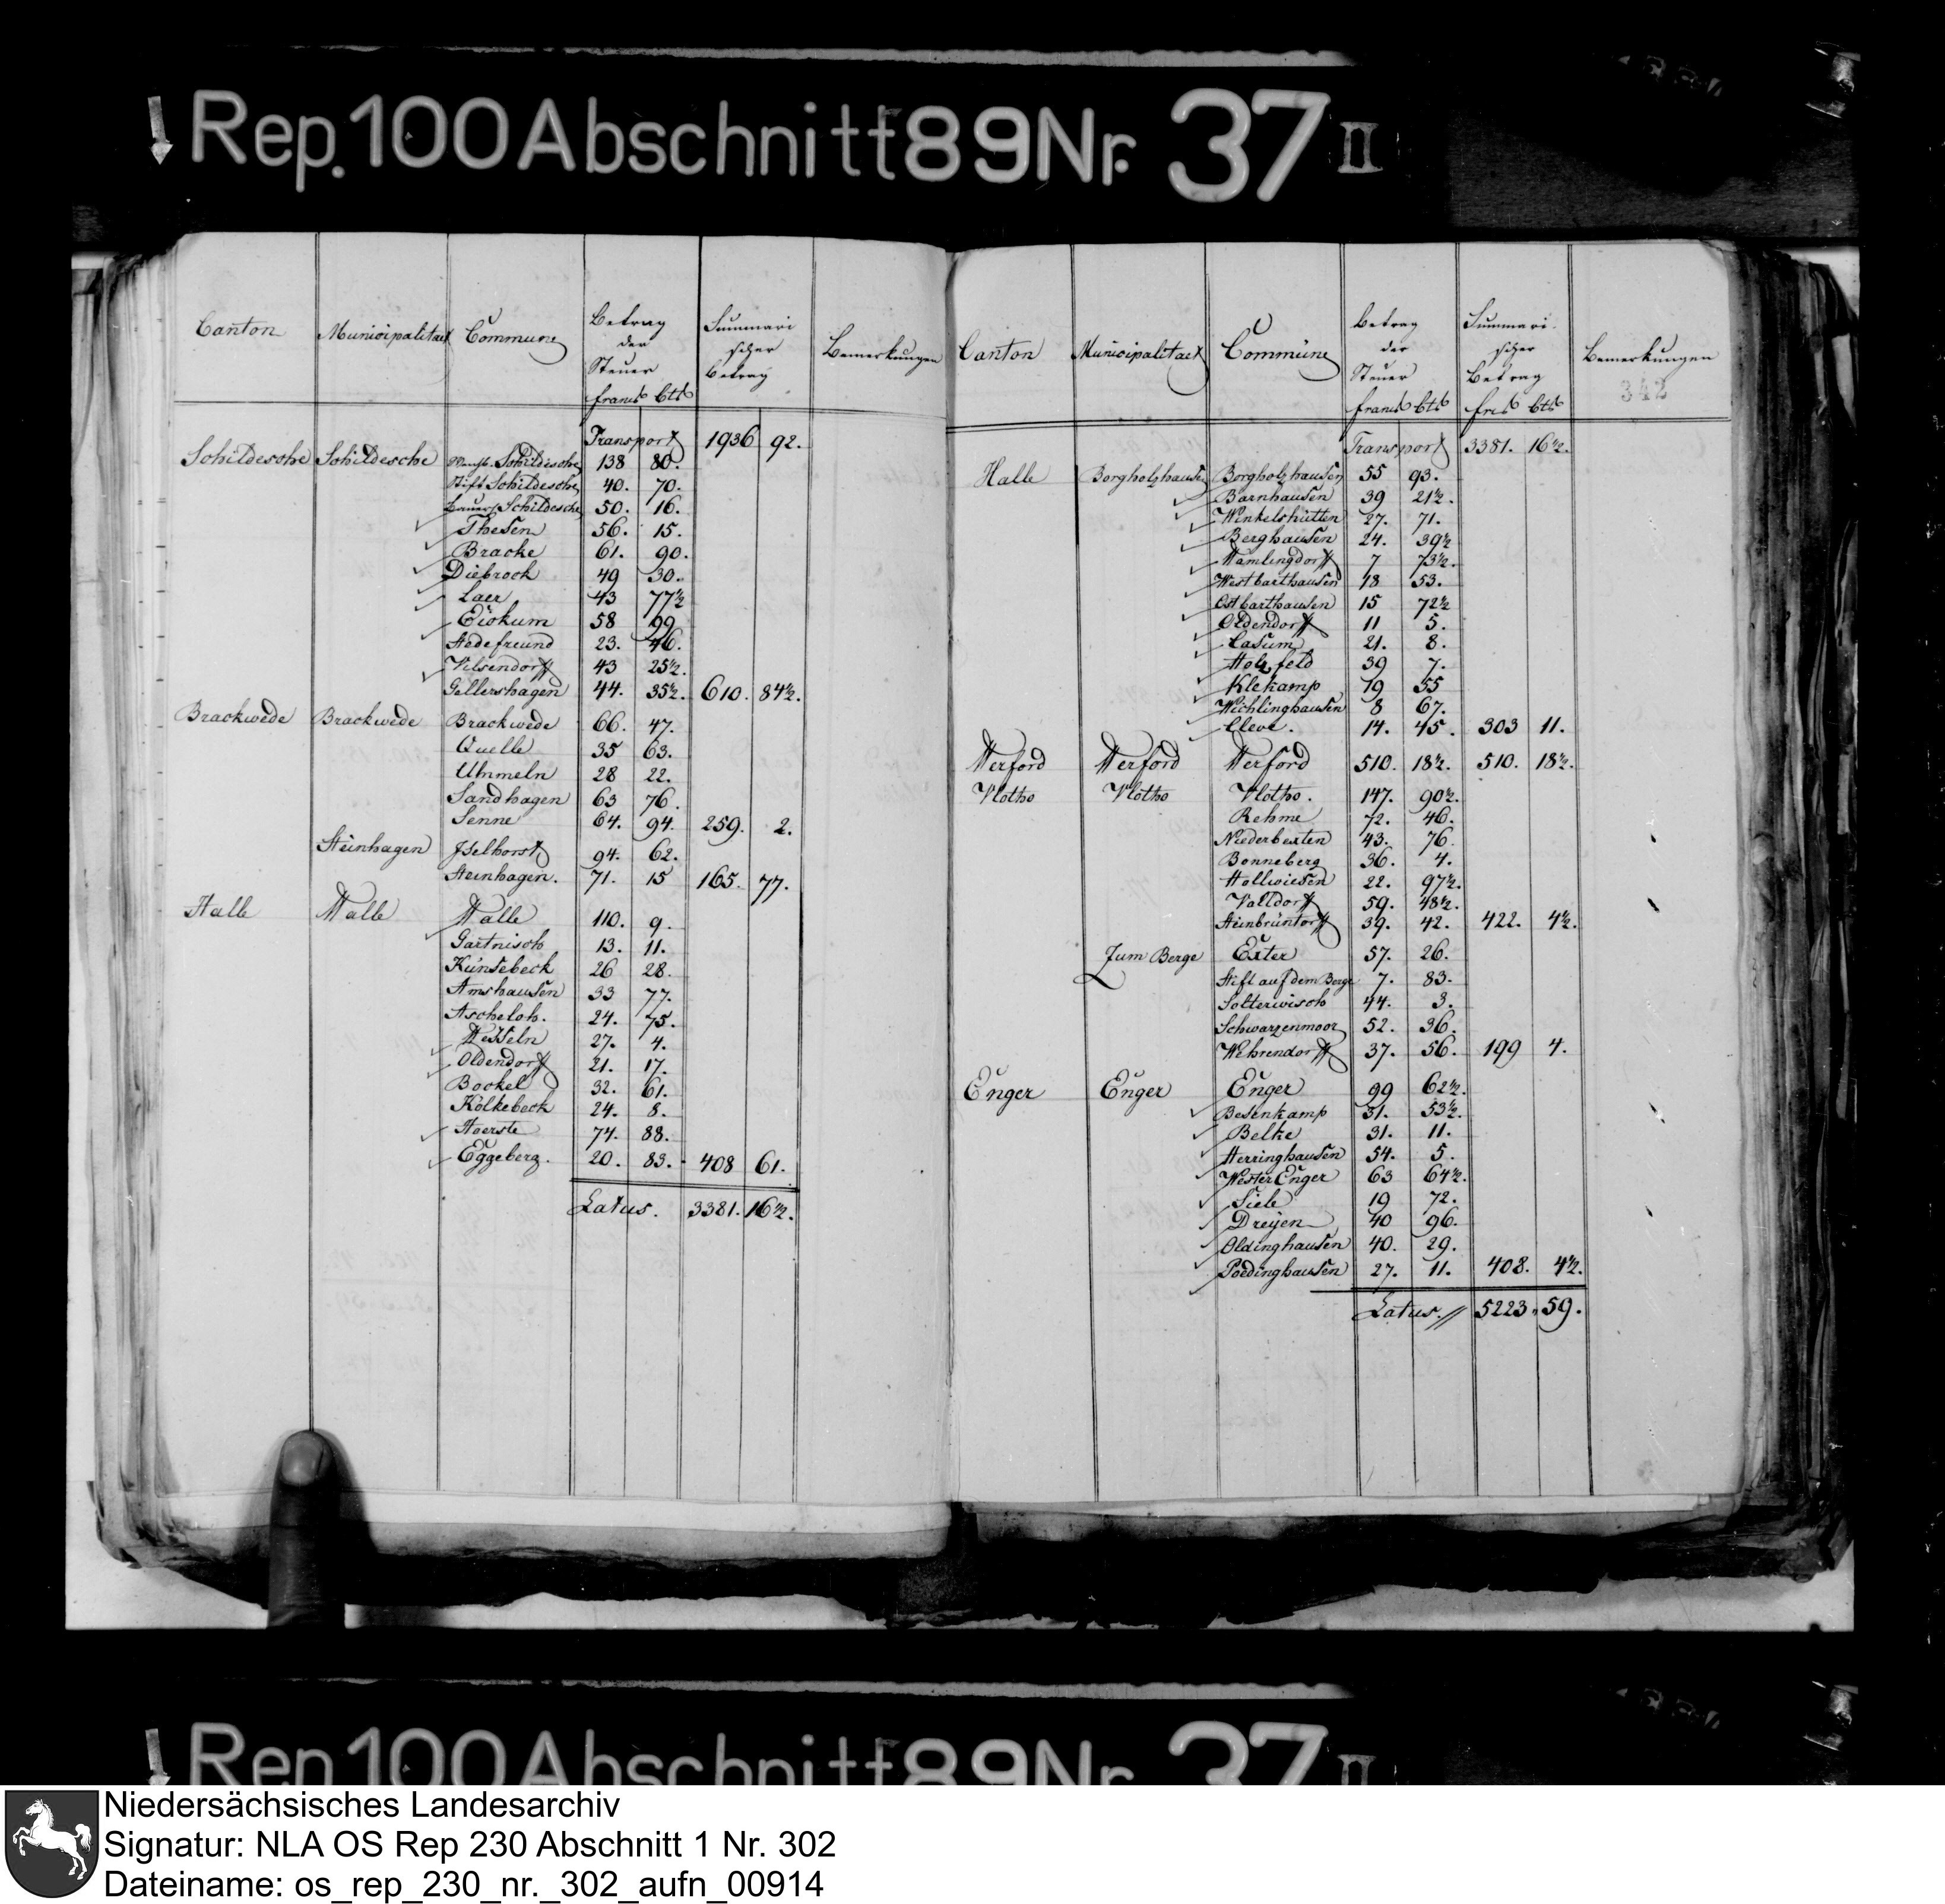 Rep. 100 Abschnitt 89 Nr. 37 II
Canton Municipalitaet Commune Betrag der Steuer Summarischer Betrag Bemerkungen
francs Cts
Transport 1936 92.
Schildesche Schildesche Schildesche 138 80.
Stift Schildesche 40. 70.
Bauers. Schildesche 50. 16.
Thesen 56. 15.
Bracke 61. 90.
Diebrock 49 30.
Laer 43 77½
Eickum 58 99
Hedefreund 23. 46.
Vilsendorff 43 25½.
Gellershagen 44. 35½. 610. 84½.
Brackwede Brackwede Brackwede 66. 47.
Quelle 35 63.
Ummeln 28 22.
Sandhagen 63 76.
Senne 64. 94. 259. 2.
Steinhagen Iselhorst 94. 62.
Steinhagen. 71. 15 165. 77.
Halle Halle Halle 110. 9.
Gartnisch 13. 11.
Künsebeck 26 28.
Amshausen 33 77.
Ascheloh. 24. 75.
Hesseln 27. 4.
Oldendorff 21. 17.
Bockel 32. 61.
Kölkebeck 24. 8.
Hoerste 74. 88.
Eggeberg. 20. 83. 408 61.
Latus. 3381. 16½.
Canton Municipalitaet Commüne Betrag der Steuer Summarischer Betrag Bemerkungen
342
francs Cts frcs Cts
Transport 3381. 16½.
Halle Borgholzhausen Borgholzhausen 55 93.
Barnhausen 39 21½.
Winkelshütten 27. 71.
Berghausen 24. 39½
Hamlingdorff 7 73½.
Westbarthausen 18 53.
Ostbarthausen 15 72½
Oldendorff 11 5.
Casum 21. 8.
Holzfeld 39 7.
Klekamp 19 55
Wichlinghausen 8 67.
Cleve. 14. 45. 303 11.
Herford Herford Herford 510. 18½. 510. 18½.
Vlotho Vlotho Vlotho. 147. 90½.
Rehme 72. 46.
Niederbexten 43. 76.
Bonneberg 36. 4.
Hollwiesen 22. 97½.
Valldorff 59. 48½.
Steinbrüntorff 39. 42. 422. 4½.
Zum Berge Exter 57. 26.
Stift auf dem Berge 7. 83.
Solterwisch 44. 3.
Schwarzenmoor 52. 36.
Wehrendorff 37. 56. 199 4.
Enger Enger Enger 99 62½.
Besenkamp 31. 53½.
Belke 31. 11.
Herringhausen 54. 5.
Wester Enger 63 64½.
Siele 19 72.
Dreyen 40 96.
Oldinghausen 40. 29.
Poedinghausen 27. 11. 408. 4½.
Latus. 5223. 59.
Rep. 100 Abschnitt 89 Nr. 37 II
Niedersächsisches Landesarchiv
Signatur: NLA OS Rep 230 Abschnitt 1 Nr. 302
Dateiname: os_rep_230_nr._302_aufn_00914